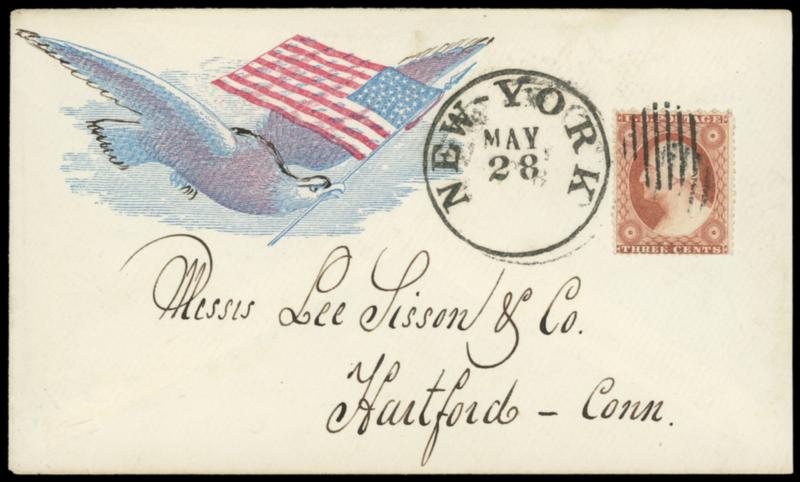 NEW-YORK
MAY
28
THREE CENTS
Messrs Lee Sisson & Co.
Hartford - Conn.